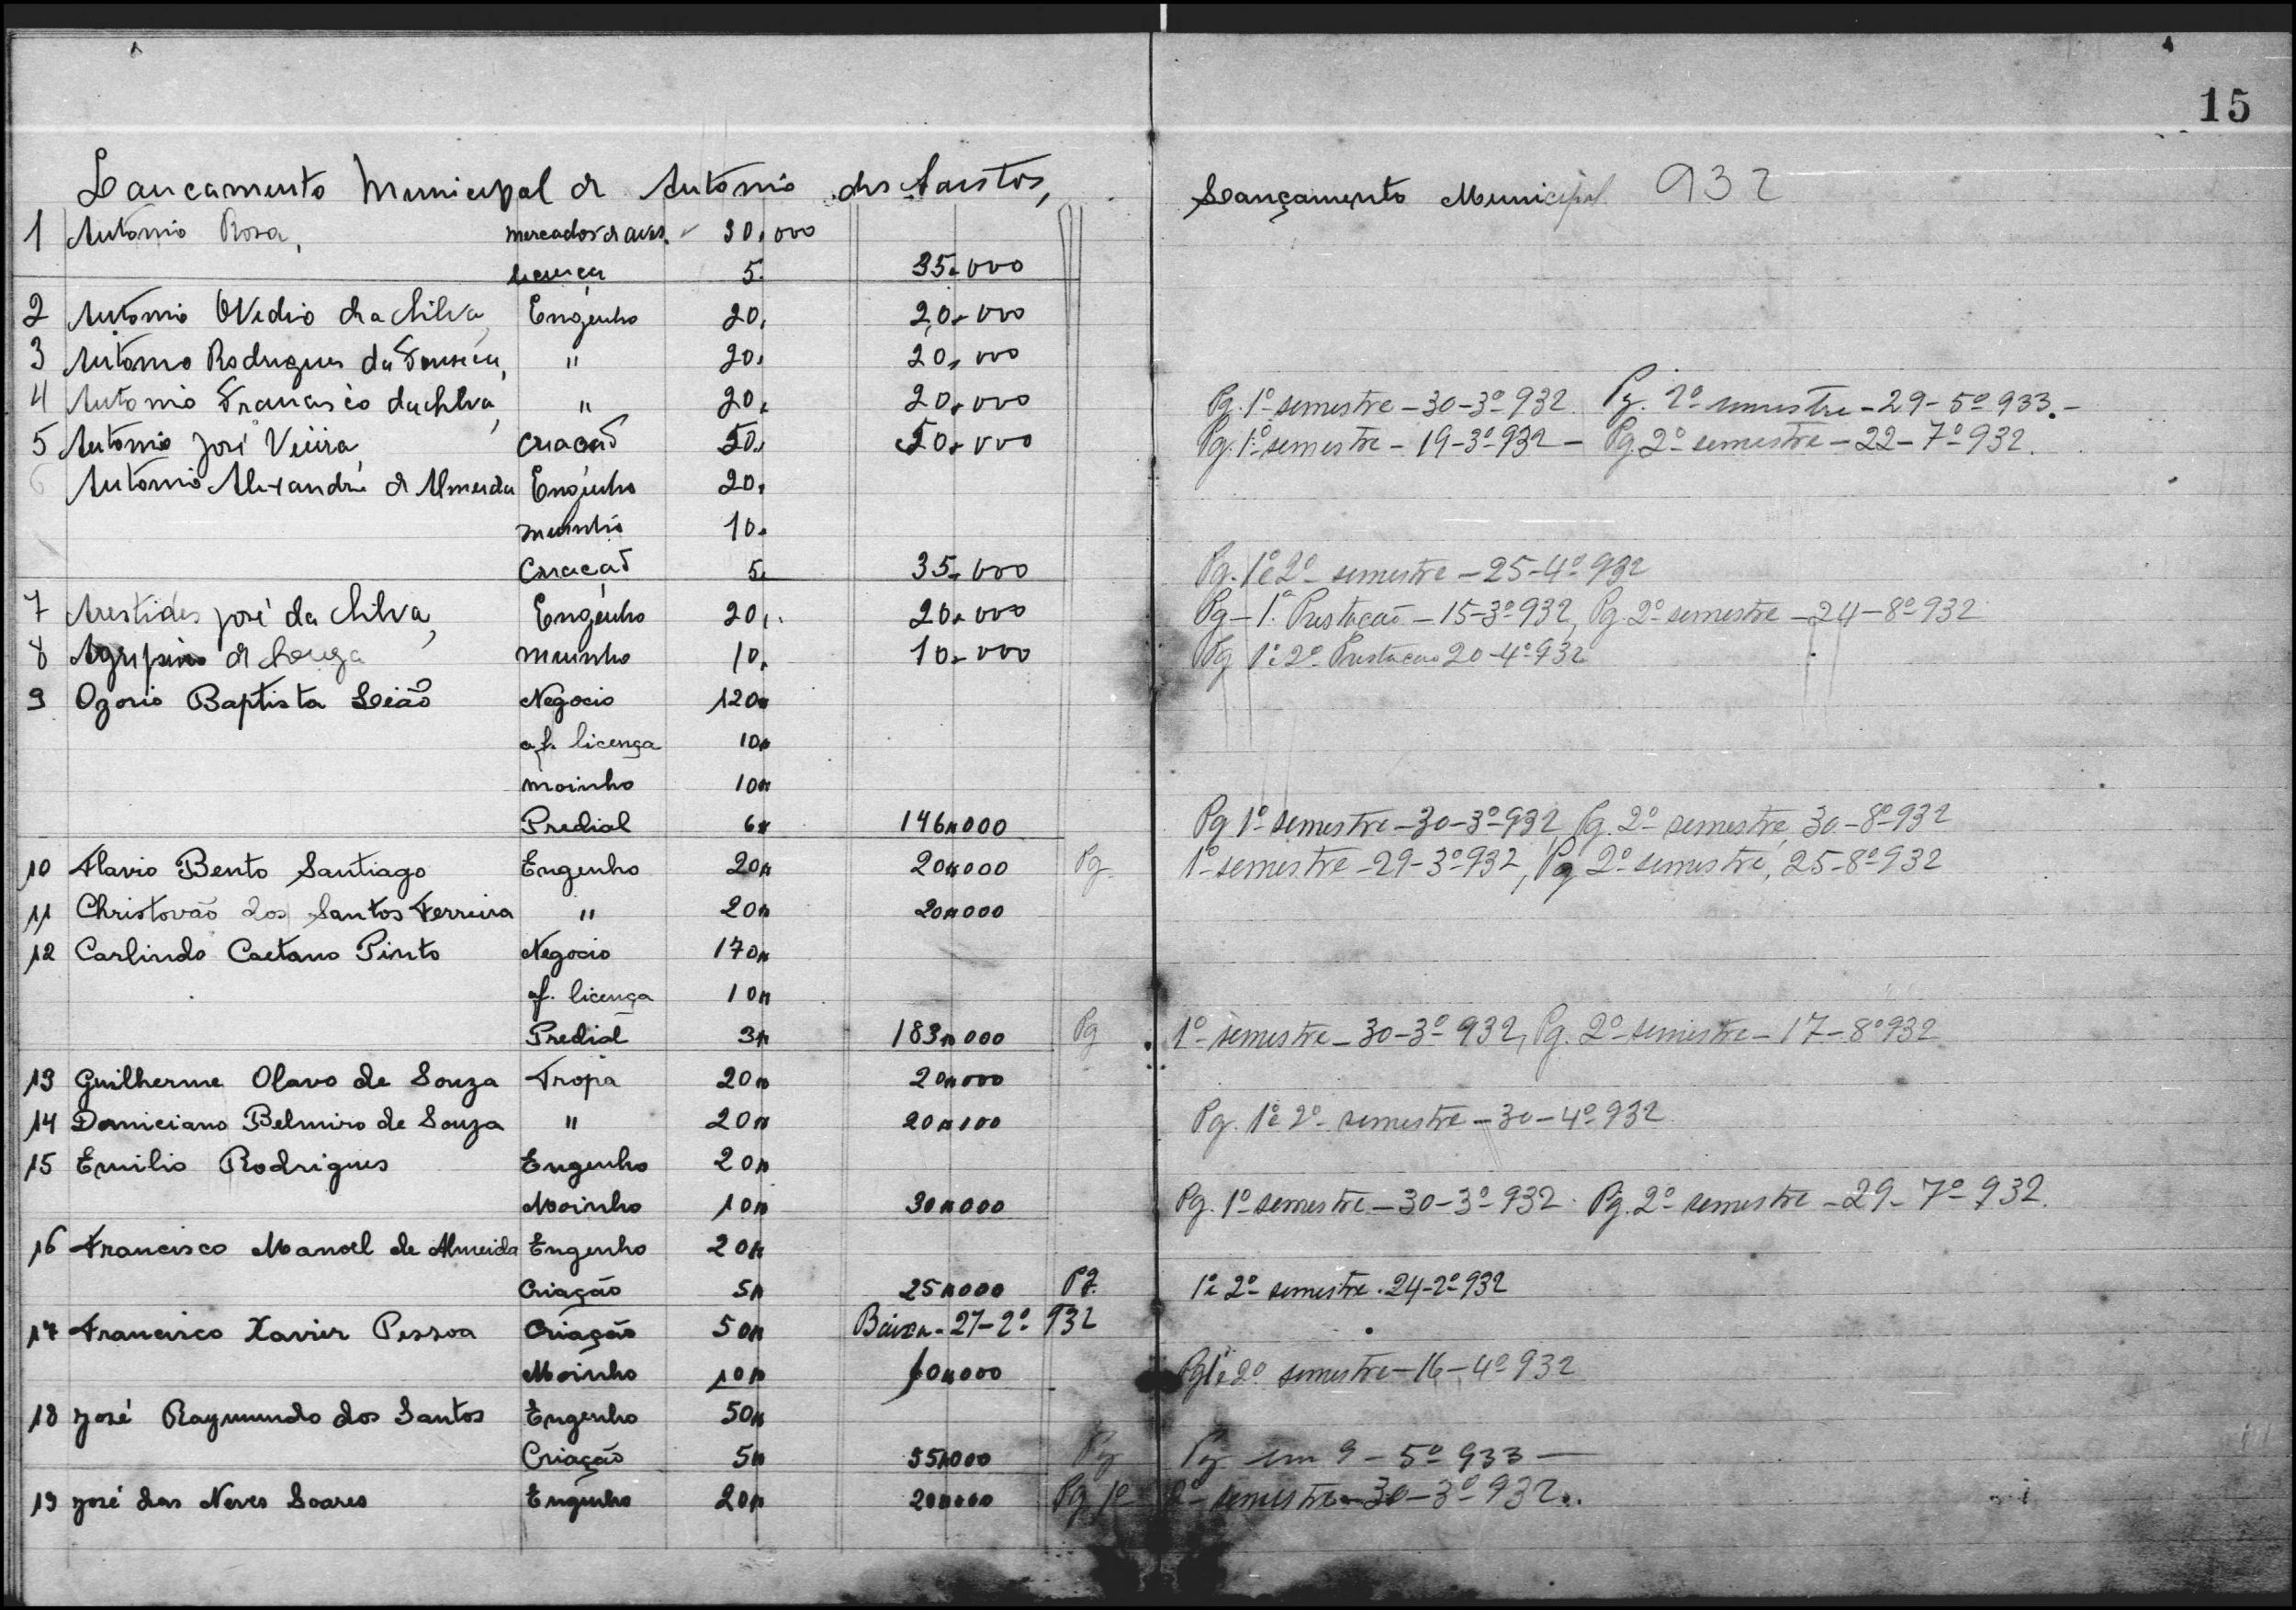 15
Lancamento Municipal de Antonio dos Santos,
Lançamento Municipal 932
1 Antonio Rosa, mercador de aves. 30,000
licença 5. 35.000
2 Antonio Ovidio da Silva, Engenho 20. 20.000
3 Antonio Rodrigues da Fonseca, " 20. 20.000
4 Antonio Francisco da Silva, " 20. 20.000 Pg. 1º semestre - 30-3º 932. Pg. 2º semestre - 29-5º 933.-
5 Antonio José Vieira, Criacaõ 50. 50.000 Pg. 1º semestre - 19-3º-932 - Pg. 2º semestre - 22-7º 932.
6 Antonio Alexandre de Almeida Engenho 20.
muinho 10.
Criacaõ 5. 35.000 Pg. 1º e 2º semestre - 25-4º 932
7 Arestides José da Silva, Engenho 20. 20.000 Pg - 1ª Prestacaõ - 15-3º 932, Pg. 2º semestre - 24-8º 932
8 Agripino de Souza muinho 10. 10.000 Pg 1º e 2º Prestacao 20-4º 932
9 Ozorio Baptista Leião Negocio 120$
af. licença 10$
moinho 10$
Predial 6$ 146$000 Pg 1º semestre - 30-3º-932, Pg. 2º semestre, 30-8º 932
10 Flavio Bento Santiago Engenho 20$ 20$000 Pg. 1º semestre - 29-3º 932, Pg 2º semestre, 25-8º 932
11 Christovão dos Santos Ferreira " 20$ 20$000
12 Carlindo Caetano Pinto Negocio 170$
af. licença 10$
Predial 3$ 183$000 Pg 1º semestre - 30-3º 932, Pg. 2º semestre - 17-8º 932
13 Guilherme Olavo de Souza Tropa 20$ 20$000
14 Domiciano Belmiro de Souza " 20$ 20$100 Pg. 1º e 2º semestre - 30-4º 932
15 Emilio Rodrigues Engenho 20$
Moinho 10$ 30$000 Pg. 1º semestre - 30-3º 932. Pg. 2º semestre - 29-7º 932.
16 Francisco Manoel de Almeida Engenho 20$
Criação 5$ 25$000 Pg. 1º e 2º semestre. 24-2º 932
17 Francisco Xavier Pessoa Criação 50$ Baixa - 27-2º 932
Moinho 10$ 10$000 Pg 1º e 2º semestre - 16-4º 932
18 José Raymundo dos Santos Engenho 50$
Criação 5$ 55$000 Pg Pg em 9-5º 933 -
19 José das Neves Soares Engenho 20$ 20$000 Pg 1º semestre - 30-3º 932.